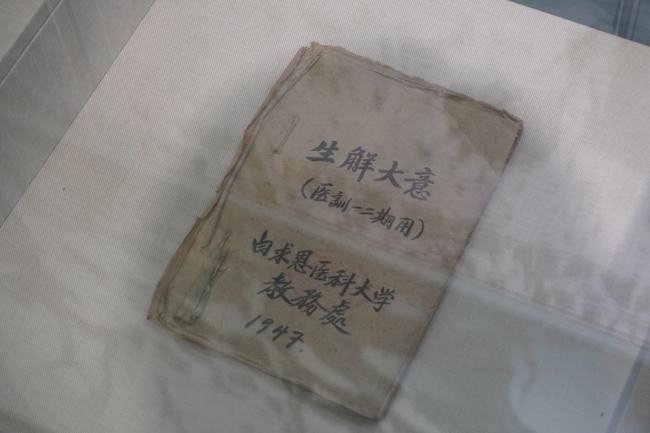 生解大意
(医訓一二期用)
白求恩医科大学
教務處
1947.